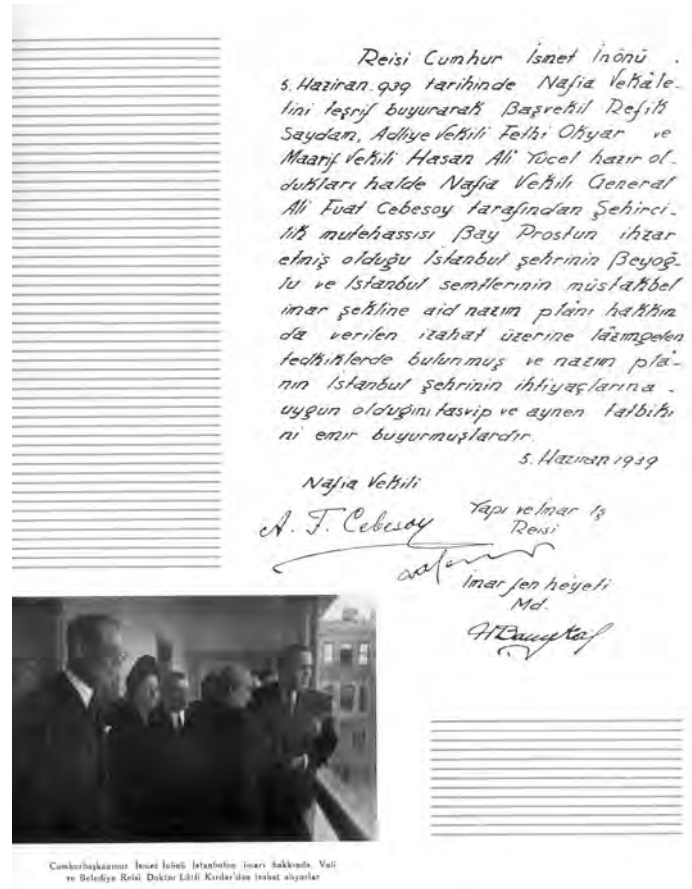 Reisi Cumhur İsmet İnönü .
5. Haziran. 939 tarihinde Nafia Vekâle-
tini teşrif buyurarak Başvekil Refik
Saydam, Adliye Vekili Fethi Okyar ve
Maarif Vekili Hasan Ali Yücel hazır ol-
dukları halde Nafia Vekili General
Ali Fuat Cebesoy tarafından Şehirci-
lik mutehassısı Bay Prostun ihzar
etmiş olduğu İstanbul şehrinin Beyoğ-
lu ve İstanbul semtlerinin müstakbel
imar şekline aid nazım plânı hakkın
da verilen izahat üzerine lâzımgelen
tedkiklerde bulunmuş ve nazım plâ-
nın İstanbul şehrinin ihtiyaçlarına -
uygun olduğını tasvip ve aynen tatbikı
ni emir buyurmuşlardır.
5. Haziran 1939
Nafia Vekili
A. F. Cebesoy
Yapı ve İmar İş
Reisi
İmar fen heyeti
Md.
Cumhurbaşkanımız İsmet İnönü İstanbulun imarı hakkında Vali
ve Belediye Reisi Doktor Lûtfi Kırdar'dan izahat alıyorlar